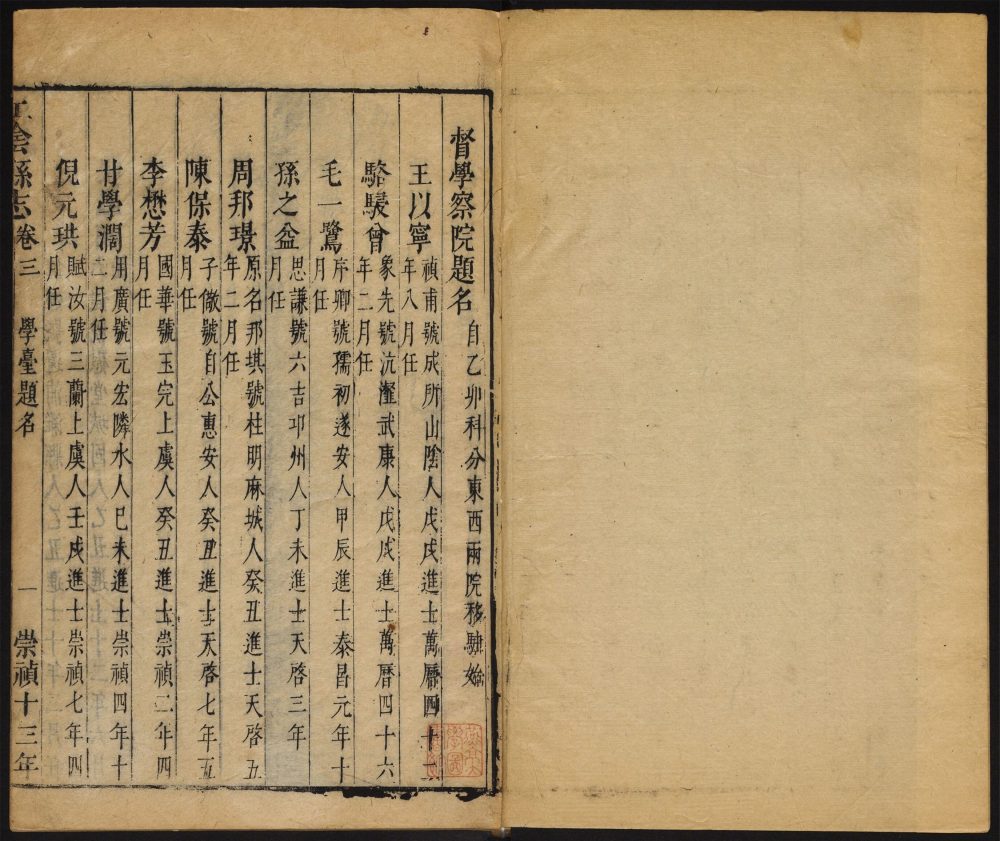 督學察院題名自乙卯科分東西兩院移駐始
王以寧禎甫號成所山陰人戊戌進士萬曆四十二
年八月任
駱駸曾象先號沆瀣武康人戊戌進士萬曆四十六
年二月任
毛一鷺序卿號孺初遂安人甲辰進士泰昌元年十
月任
孫之益思謙號六吉邛州人丁未進士天啓三年
月任
周邦璟原名邦堪號柱明麻城人癸丑進士天啓五
年二月任
陳保泰子儆號自公惠安人癸丑進士天啓七年五
月任
李懋芳國華號玉完上虞人癸丑進士崇禎二年四
月任
甘學濶用廣號元宏隣水人己未進士崇禎四年十
二月任
倪元珙賦汝號三蘭上虞人壬戌進士崇禎七年四
月任
江隂縣志卷三 學臺題名 一 崇禎十三年